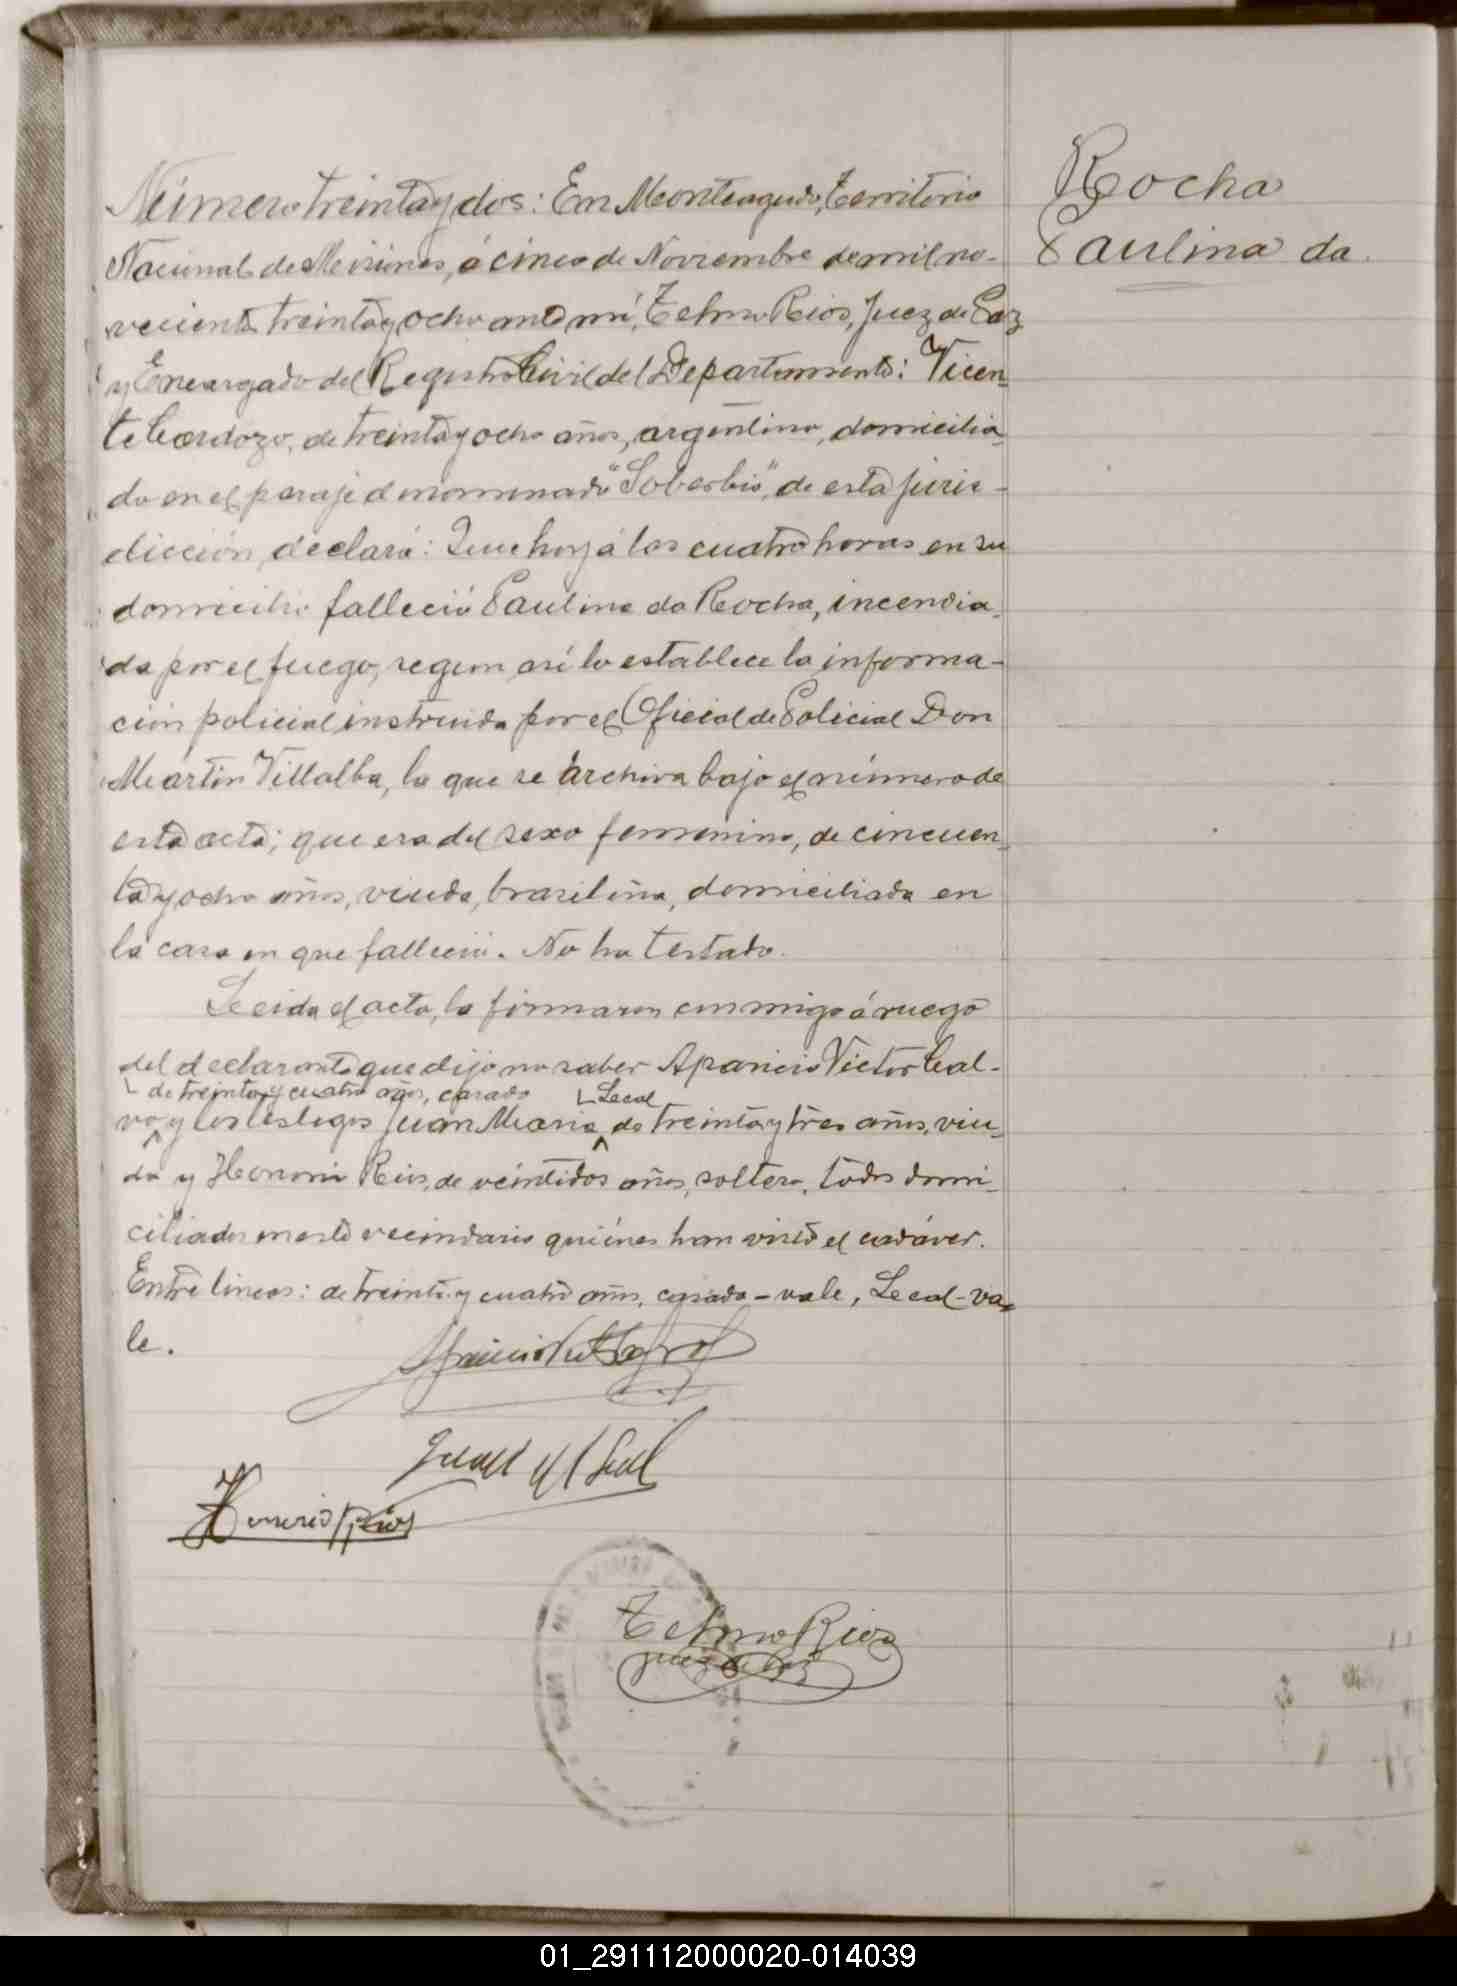 Rocha
Paulina da
Número treinta y dos: En Monteagudo, Territorio
Nacional de Misiones, á cinco de Noviembre de mil no-
vecientos treinta y ocho ante mí, Telmo Rios, Juez de Paz
y Encargado del Registro Civil del Departamento: Vicen-
te Cardozo, de treinta y ocho años, argentino, domicilia-
do en el paraje denominado "Soberbio", de esta juris-
dicción, declara: Que hoy á las cuatro horas en su
domicilio falleció Paulina da Rocha, incendia-
da por el fuego, segun así lo establece la informa-
ción policial instruida por el Oficial de Policial Don
Martin Villalba, la que se archiva bajo el número de
esta acta; que era del sexo femenino, de cincuen-
ta y ocho años, viuda, brasileña, domiciliada en
la casa en que falleció. No ha testado.
Leida el acta, la firmaron conmigo á ruego
del declarante que dijo no saber Aparicio Victor Cal-
de treinta y cuatro años, casado Leal
vo y los testigos Juan Maria de treinta y tres años, viu-
do y Honorio Rios, de veintidos años, soltero, todos domi-
ciliados en este vecindario quiénes han visto el cadáver.
Entre lineas: de treinta y cuatro años, casado - vale, Leal - va-
le.
Juan M Leal
Honorio Rios
Telmo Rios
Juez de Paz
01_291112000020-014039